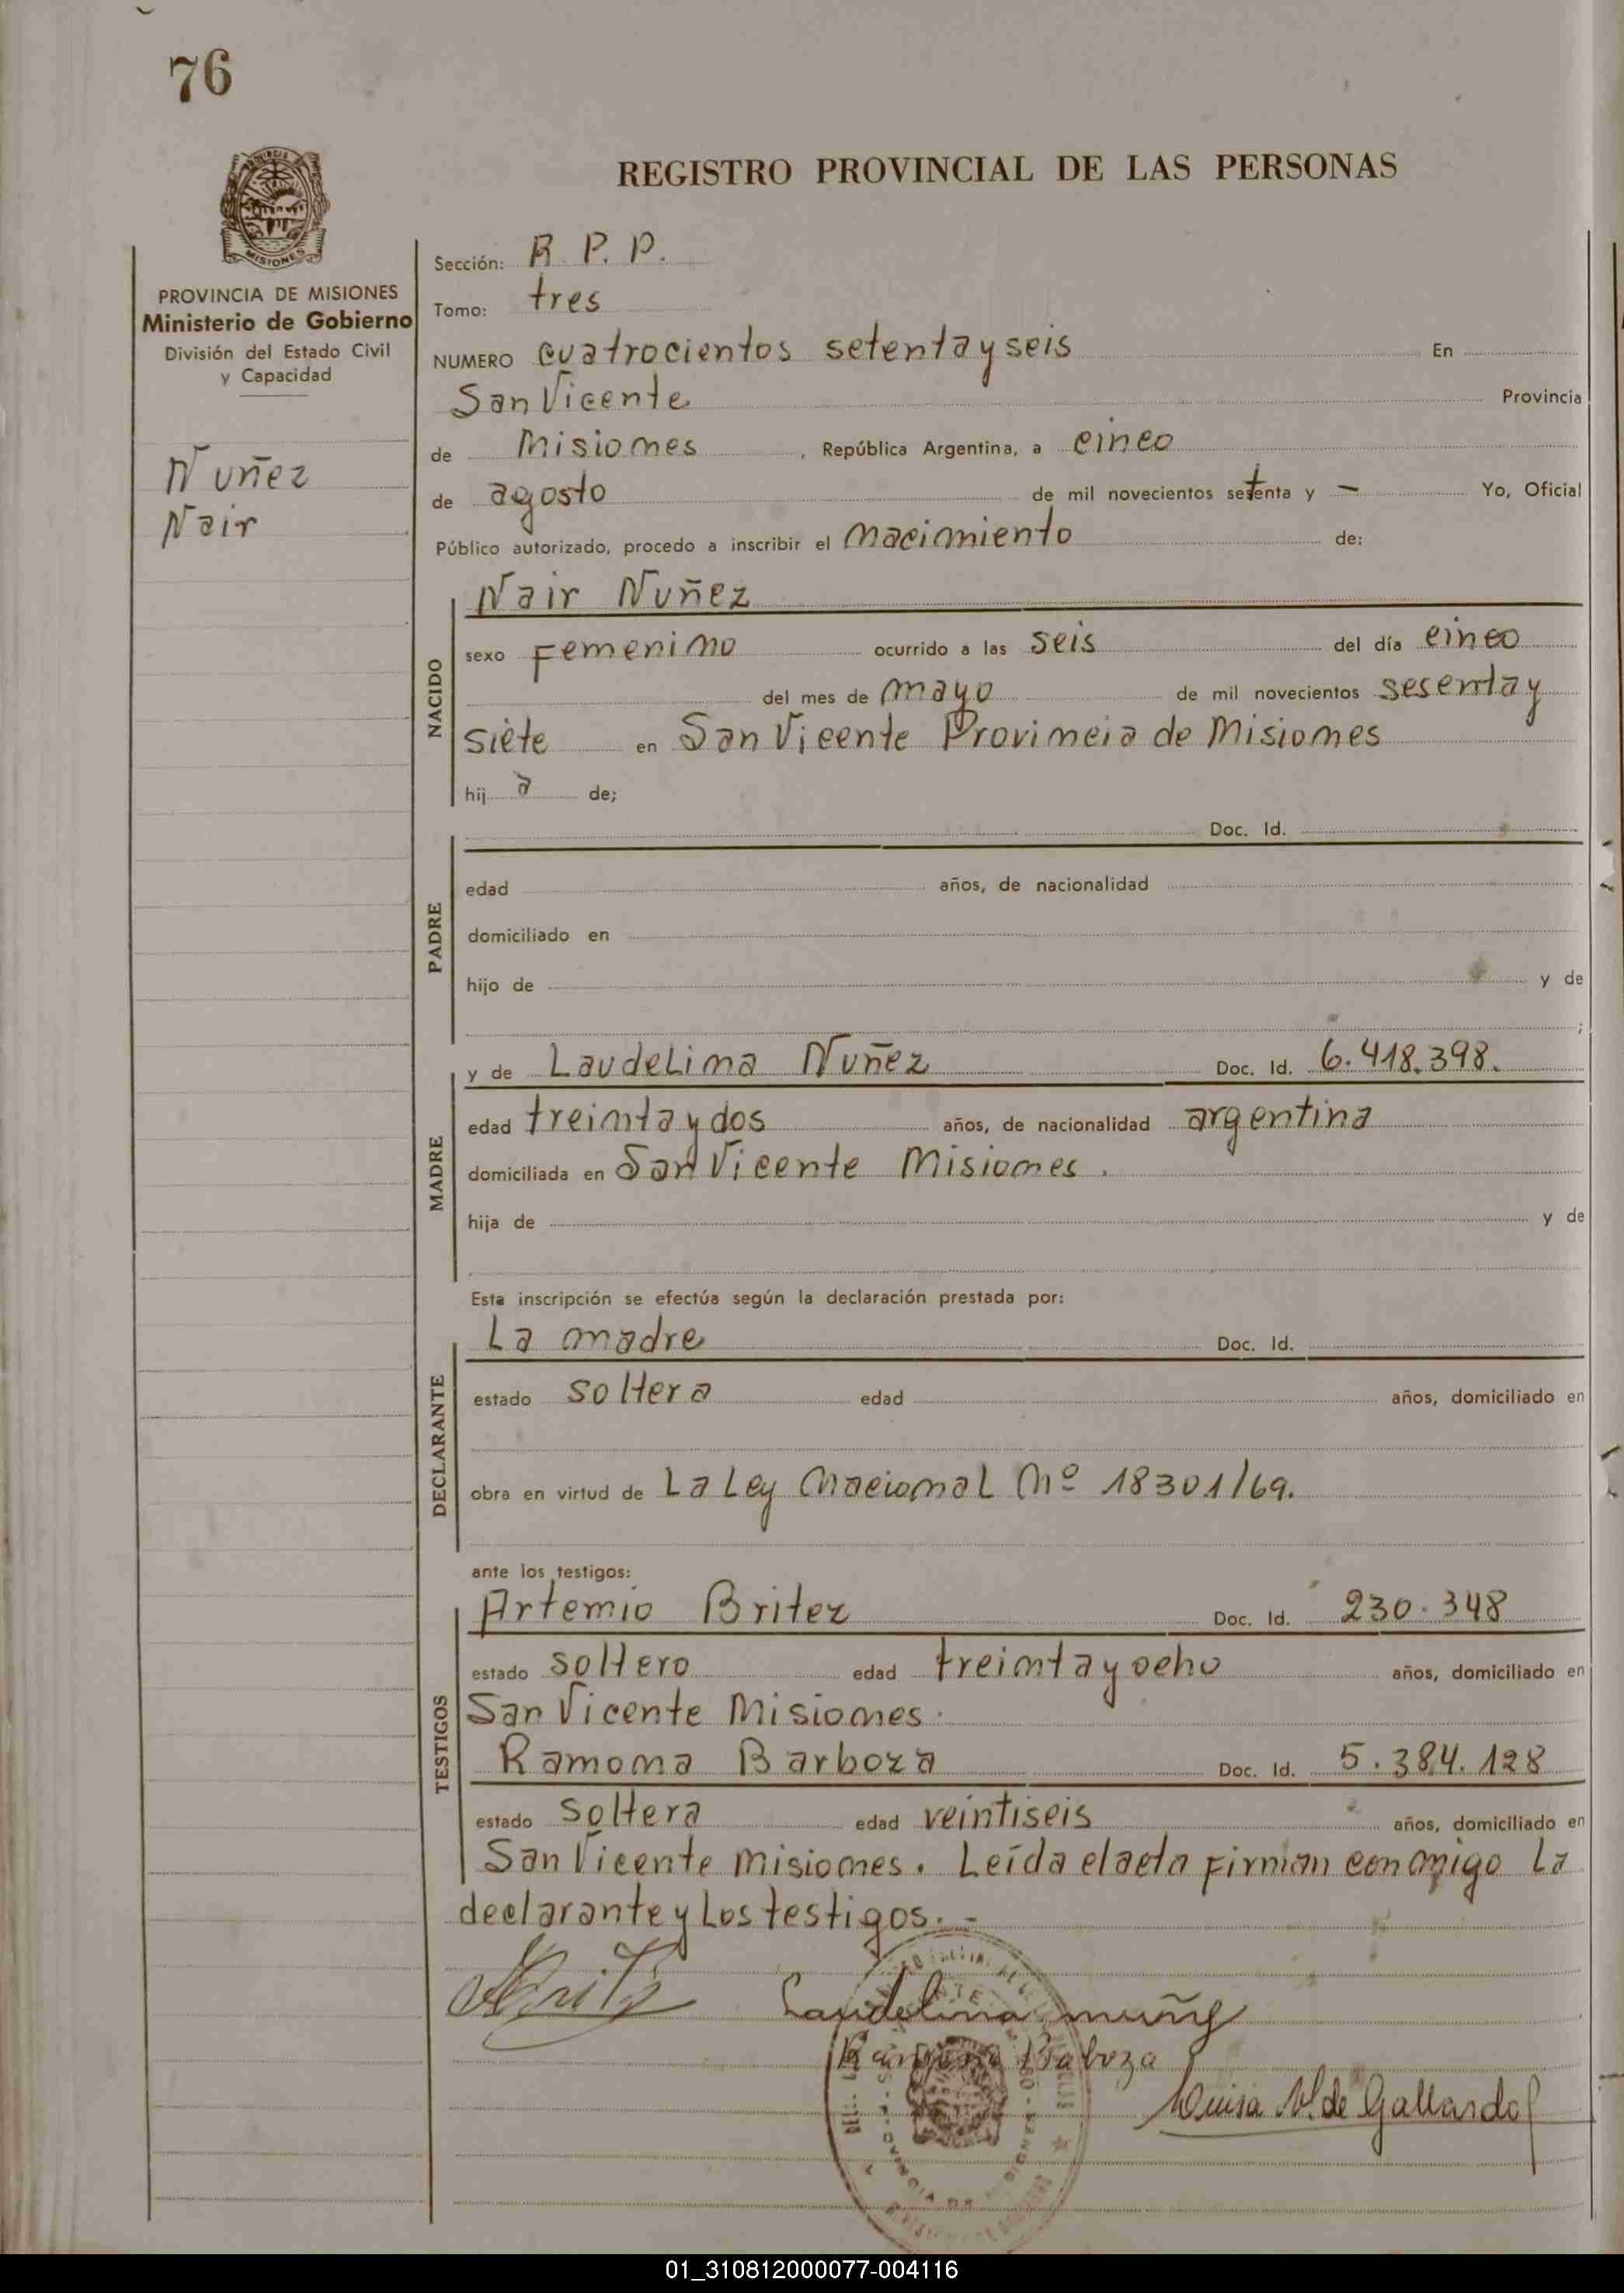 76
REGISTRO PROVINCIAL DE LAS PERSONAS
MISIONES
PROVINCIA DE MISIONES
Ministerio de Gobierno
División del Estado Civil
y Capacidad
Nuñez
Nair
Sección: R. P. P.
Tomo: tres
NUMERO cuatrocientos setenta y seis En
San Vicente Provincia
de Misiones, República Argentina, a cinco
de agosto de mil novecientos setenta y — Yo, Oficial
Público autorizado, procedo a inscribir el nacimiento de:
NACIDO
Nair Nuñez
sexo femenino ocurrido a las seis del día cinco
del mes de mayo de mil novecientos sesenta y
siete en San Vicente Provincia de Misiones
hij a de;
PADRE
Doc. Id.
edad años, de nacionalidad
domiciliado en
hijo de y de
;
MADRE
y de Laudelina Nuñez Doc. Id. 6.418.398.
edad treinta y dos años, de nacionalidad argentina
domiciliada en San Vicente Misiones.
hija de y de
Esta inscripción se efectúa según la declaración prestada por:
DECLARANTE
La madre Doc. Id.
estado soltera edad años, domiciliado en
obra en virtud de La Ley Nacional Nº 18301/69.
ante los testigos:
TESTIGOS
Artemio Britez Doc. Id. 230.348
estado soltero edad treinta y ocho años, domiciliado en
San Vicente Misiones.
Ramona Barboza Doc. Id. 5.384.128
estado soltera edad veintiseis años, domiciliado en
San Vicente Misiones. Leída el acta firman conmigo La
declarante y Los testigos. -
Laudelina nuñez
Ramona Baboza
Luisa V. de Gallardo
01_310812000077-004116